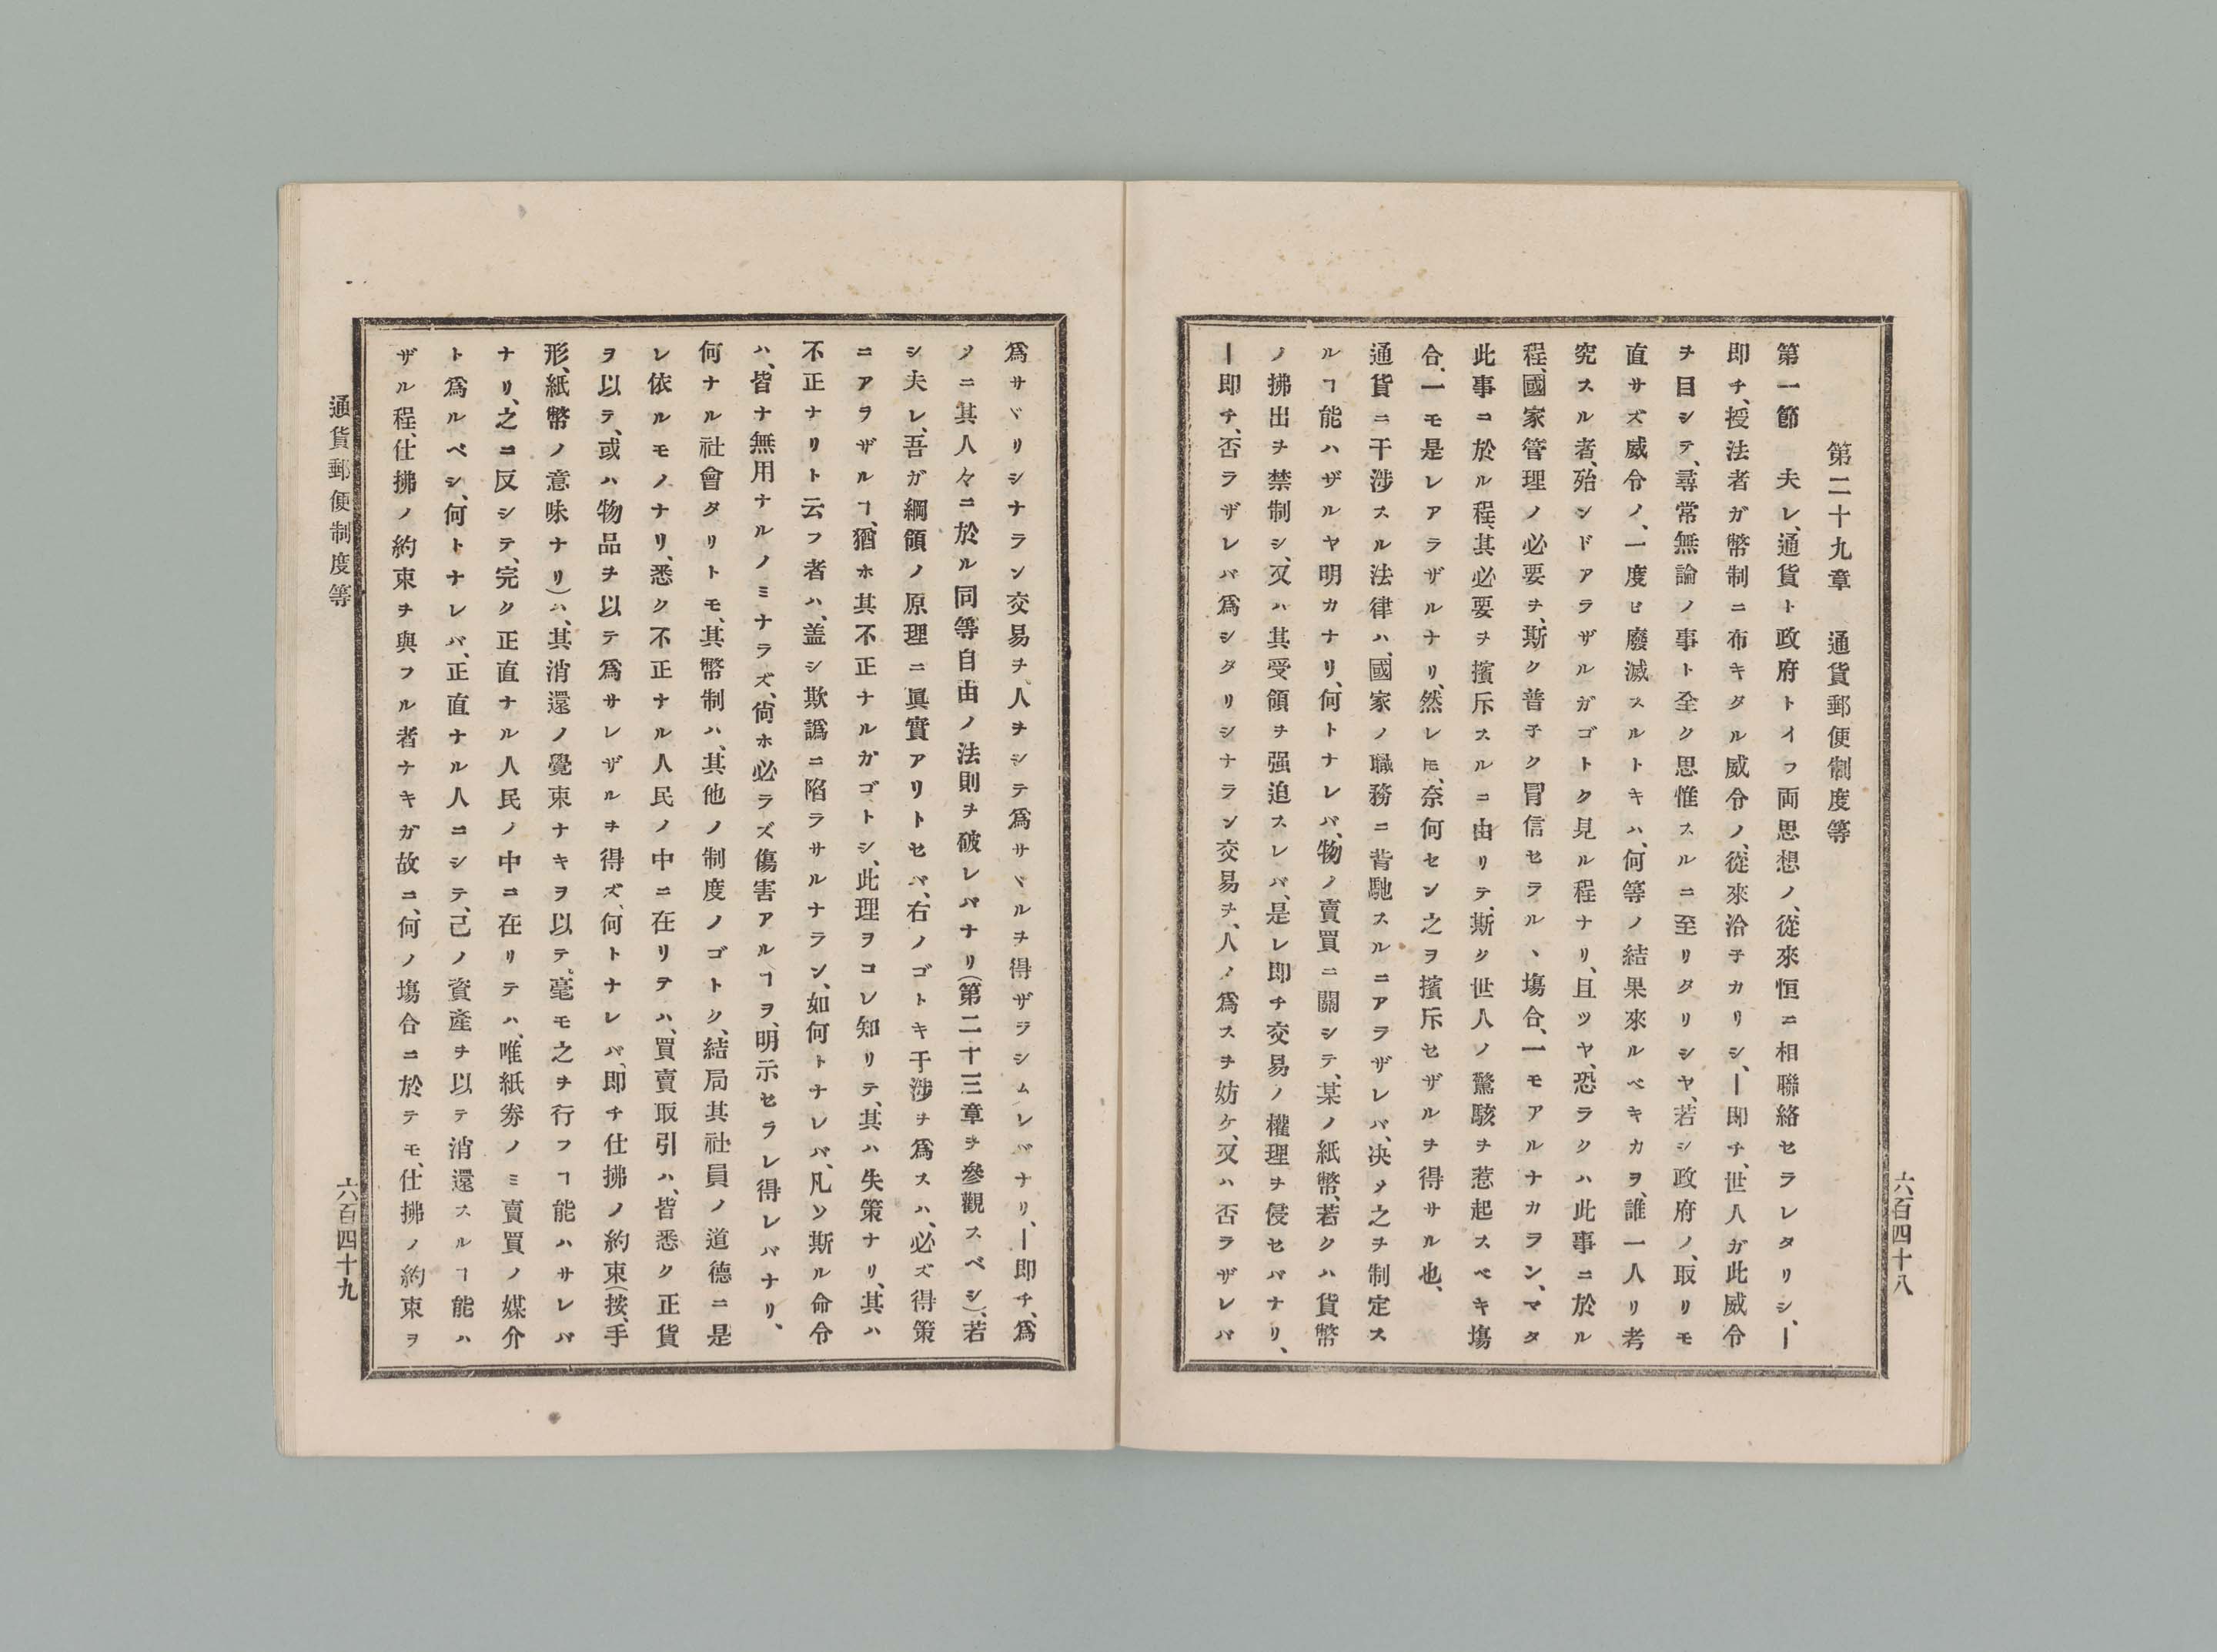 六百四十八
第二十九章　通貨郵便制度等
第一節　夫レ、通貨ト政府トイフ両思想ノ、從來恒ニ相聯絡セラレタリシ、―
即チ、授法者ガ幣制ニ布キタル威令ノ、從來洽子カリシ、―即チ、世人ガ此威令
ヲ目シテ、尋常無論ノ事ト全ク思惟スルニ至リタリシヤ、若シ政府ノ、取リモ
直サズ威令ノ、一度ビ廢滅スルトキハ、何等ノ結果來ルベキカヲ、誰一人リ考
究スル者、殆ンドアラザルガゴトク見ル程ナリ、且ツヤ、恐ラクハ此事ニ於ル
程、國家管理ノ必要ヲ、斯ク普子ク冐信セラルヽ塲合、一モアルナカラン、マタ
此事ニ於ル程、其必要ヲ擯斥スルニ由リテ、斯ク世人ノ驚駭ヲ惹起スベキ塲
合、一モ是レアラザルナリ、然レ𪜈、奈何セン之ヲ擯斥セザルヲ得サル也、
通貨ニ干涉スル法律ハ、國家ノ職務ニ背馳スルニアラザレバ、决〆之ヲ制定ス
ルヿ能ハザルヤ明カナリ、何トナレバ、物ノ賣買ニ關シテ、某ノ紙幣、若クハ貨幣
ノ拂出ヲ禁制シ、又ハ其受領ヲ强迫スレバ、是レ即チ交易ノ權理ヲ侵セバナリ、
―即チ、否ラザレバ爲シタリシナラン交易ヲ、人ノ爲スヲ妨ケ、又ハ否ラザレバ
爲サヾリシナラン交易ヲ、人ヲシテ爲サヾルヲ得ザラシムレバナリ、―即チ、爲
ノニ其人々ニ於ル同等自由ノ法則ヲ破レバナリ（第二十三章ヲ參觀スベシ）、若
シ夫レ、吾ガ綱領ノ原理ニ眞實アリトセバ、右ノゴトキ干涉ヲ爲スハ、必ズ得策
ニアラザルヿ、猶ホ其不正ナルガゴトシ、此理ヲコレ知リテ、其ハ失策ナリ、其ハ
不正ナリト云フ者ハ、盖シ欺譌ニ陷ラサルナラン、如何トナレバ、凡ソ斯ル命令
ハ、皆ナ無用ナルノミナラズ、尙ホ必ラズ傷害アルヿヲ、明示セラレ得レバナリ、
何ナル社會タリトモ、其幣制ハ、其他ノ制度ノゴトク、結局其社員ノ道德ニ是
レ依ルモノナリ、悉ク不正ナル人民ノ中ニ在リテハ、買賣取引ハ、皆悉ク正貨
ヲ以テ、或ハ物品ヲ以テ爲サレザルヲ得ズ、何トナレバ、即チ仕拂ノ約束（按、手
形、紙幣ノ意味ナリ）ハ、其消還ノ覺束ナキヲ以テ、毫モ之ヲ行フヿ能ハサレバ
ナリ、之ニ反シテ、完ク正直ナル人民ノ中ニ在リテハ、唯紙券ノミ賣買ノ媒介
ト爲ルベシ、何トナレバ、正直ナル人ニシテ、己ノ資產ヲ以テ消還スルヿ能ハ
ザル程、仕拂ノ約束ヲ與フル者ナキガ故ニ、何ノ塲合ニ於テモ、仕拂ノ約束ヲ
通貨郵便制度等
六百四十九